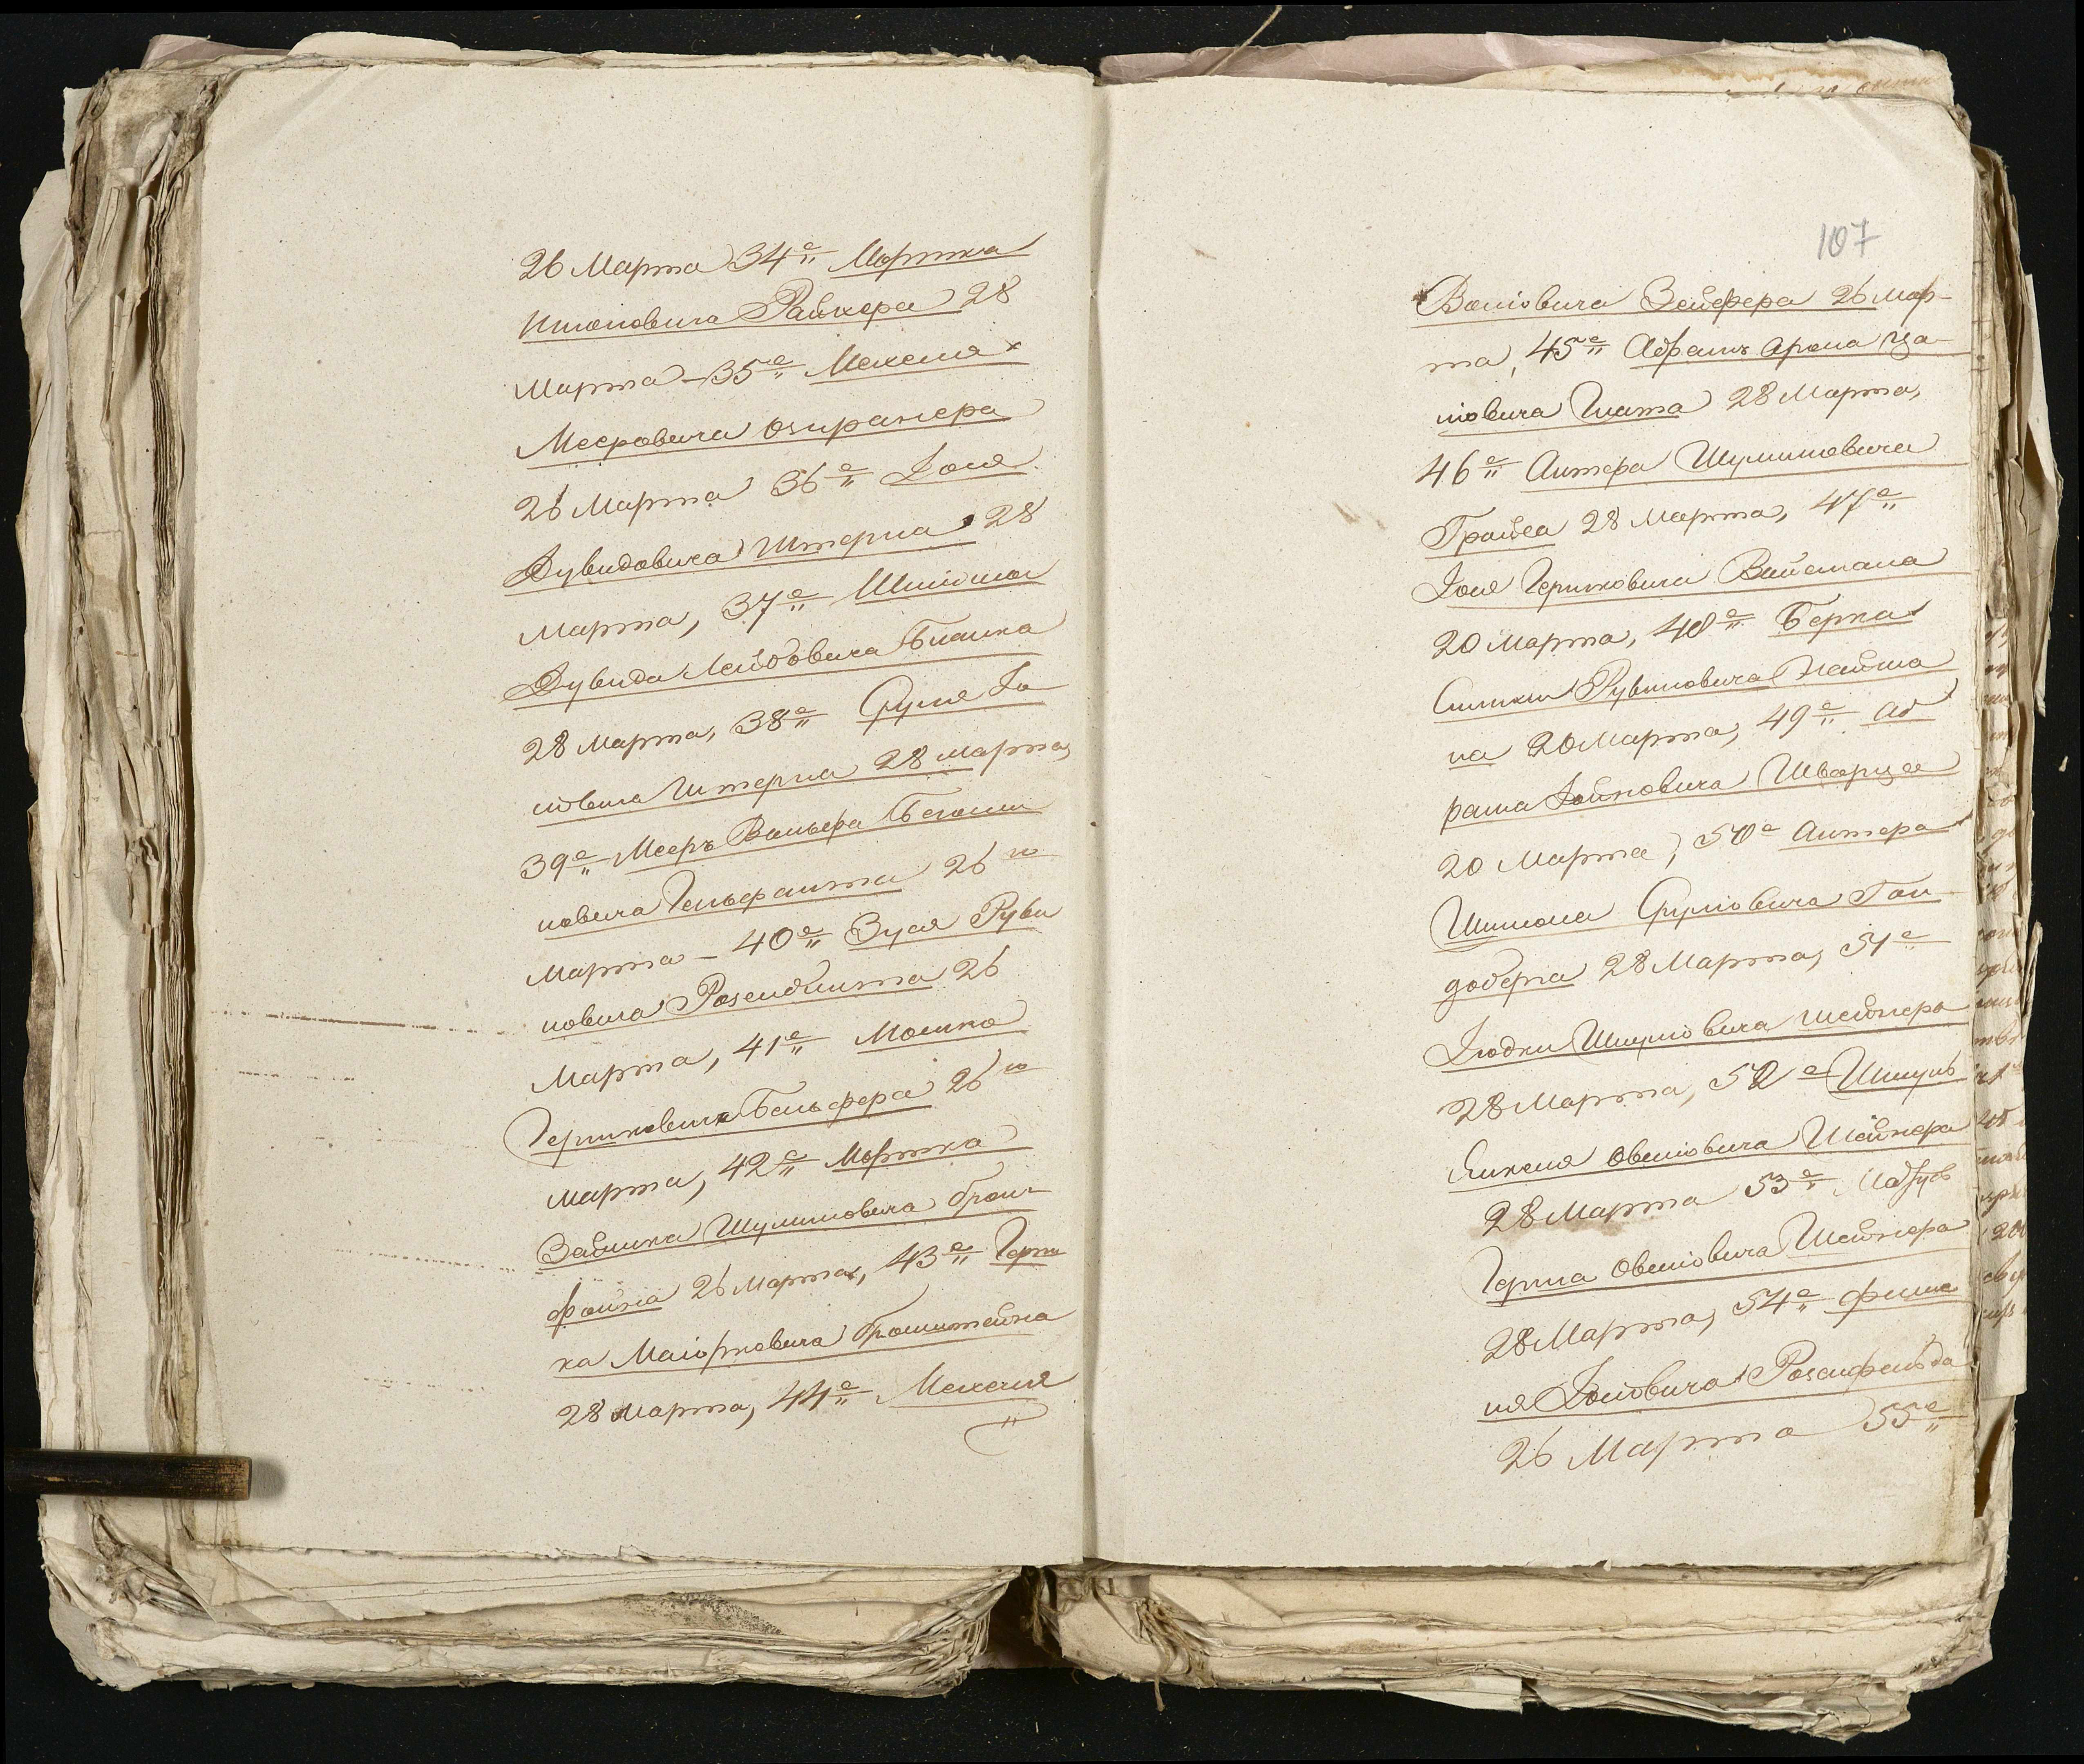 26 Марта 34е Мортка
Ицковича Райхера 28
Марта – 35е Мехеля
Мееровича Озиранера
26 Марта 36е Іося
Дувидовича Штерна 28
Марта, 37е Шліома
Дувида Лейбовича Бланка
28 Марта, 38е Сруля Іо
новича Штерна 28 Марта,
39е Мееръ Вольфа Беньми
новича Гельфанта 26го
Марта – 40е Зуся Руви
новича Розенблита 26
Марта, 41е Мошка
Гершковича Бельфера 26го
Марта, 42е Мортка
Зельмана Шулимовича Брон
файна 26 Марта, 43е Герш
ка Маіорковича Бронштейна
28 Марта, 44е Мехеля
107
Волiовича Зейфера 26 Мар-
та, 45е Абрамъ Арона Ца-
лiовича Гната 28 Марта,
46е Антера Шулимовича
Гройса 28 Марта, 47е
Іося Гершковича Вайсмана
20 Марта, 48е Берка
Симхи Рувиновича Нейма
на 20 Марта, 49е Аб
рама Іойновича Шварца
20 Марта, 50е Антера
Шимона Сруліовича Гол
доберга 28 Марта, 51е
Іюдки Шмуліовича Шейнера
28 Марта, 52е Шмуль
Янкеля Овшіовича Шейнера
28 Марта 53е
Герша Овшіовича Шейнера
28 Марта, 54е Фише
ля Іосіовича Розенфельда
26 Марта 55е